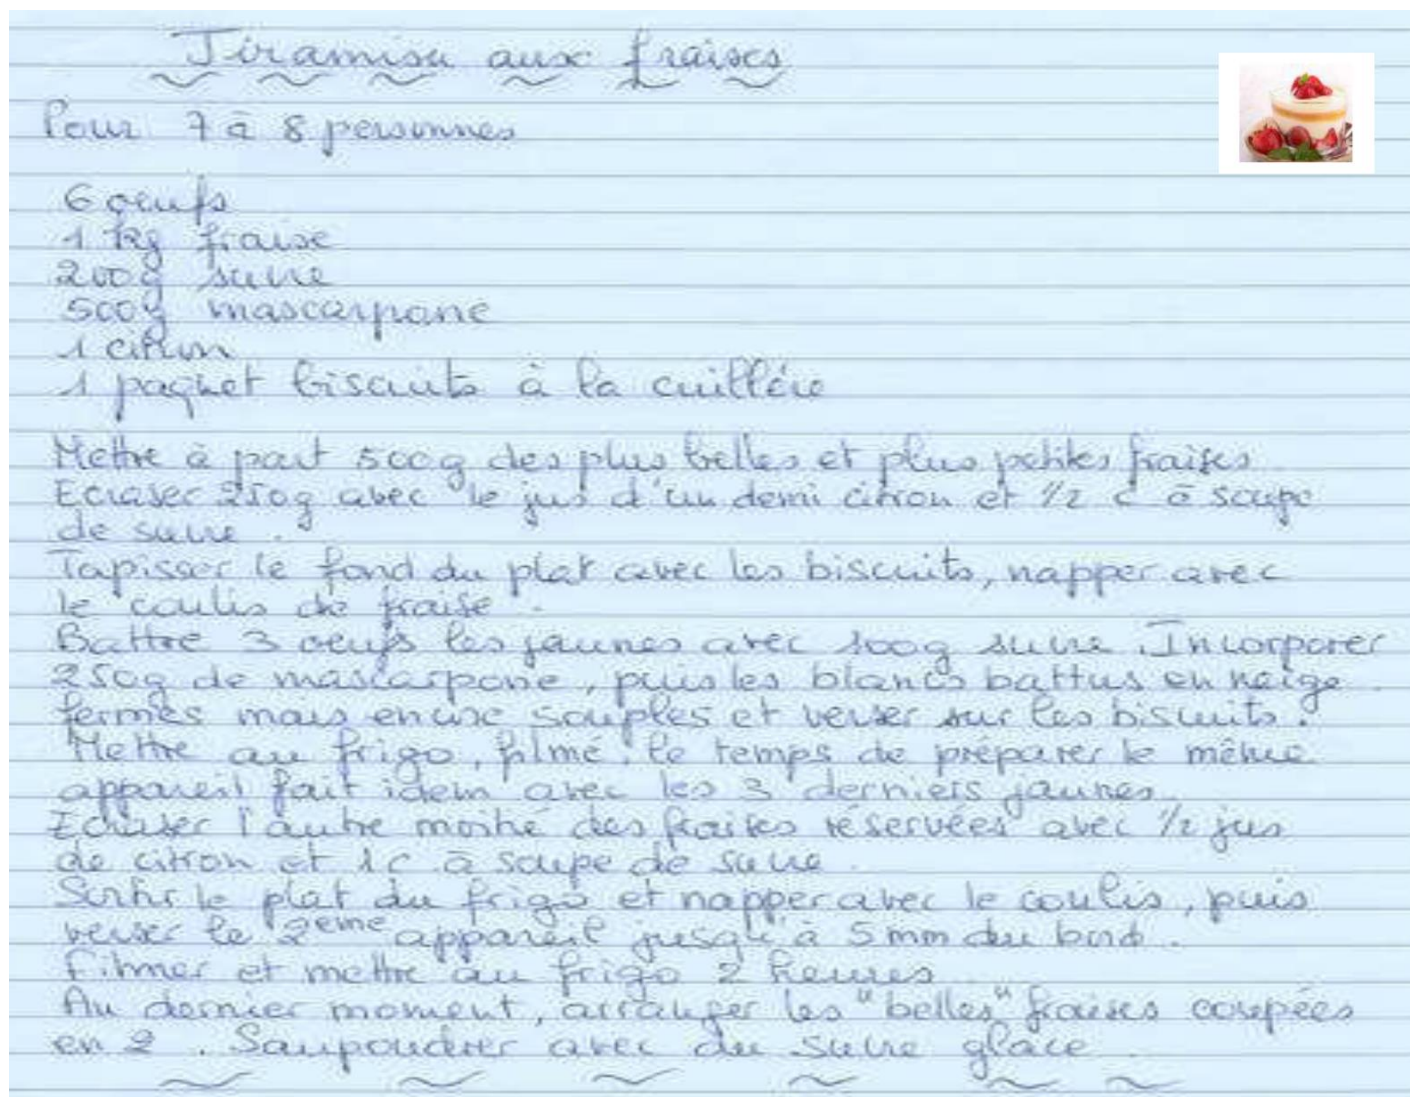 Tiramisu aux fraises
Pour 7 à 8 personnes
6 oeufs
1 kg fraise
200g sucre
500g mascarpone
1 citron
1 paquet biscuits à la cuillère
Mettre à part 500g des plus belles et plus petites fraises
Ecraser 250g avec le jus d'un demi citron et 1/2 c à soupe
de sucre.
Tapisser le fond du plat avec les biscuits, napper avec
le coulis de fraise.
Battre 3 oeufs les jaunes avec 100g sucre. Incorporer
250g de mascarpone, puis les blancs battus en neige
fermes mais encore souples et verser sur les biscuits.
Mettre au frigo, filmé, le temps de préparer le même
appareil fait idem avec les 3 derniers jaunes
Ecraser l'autre moitié des fraises réservées avec 1/2 jus
de citron et 1c à soupe de sucre.
Sortir le plat du frigo et napper avec le coulis, puis
verser le 2eme appareil jusqu'à 5 mm du bord.
Filmer et mettre au frigo 2 heures
Au dernier moment, arranger les "belles" fraises coupées
en 2. Saupoudrer avec du sucre glace.